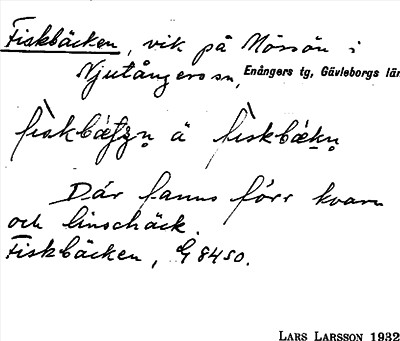 Fiskbäcken, vik på Mössön i
Njutångers sn, Enångers tg, Gävleborgs län
Där fanns förr kvarn
och linschäck.
Fiskbäcken, G 8450.
LARS LARSSON 1932